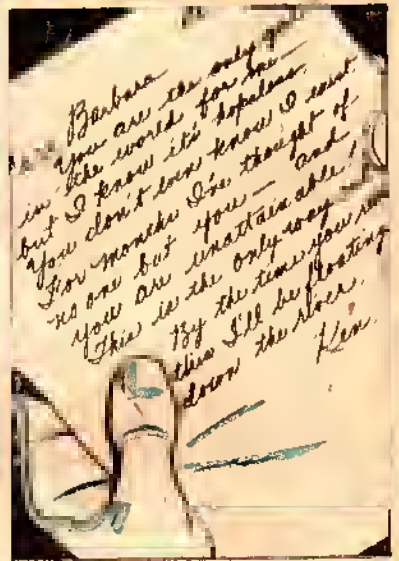 Barbara
You are the only girl
in the world for me—
but I know it's hopeless.
You don't even know I exist
For months I've thought of
no one but you — and
you are unattainable!
This is the only way
By the time you read
this I'll be floating
down the river.
Ken.